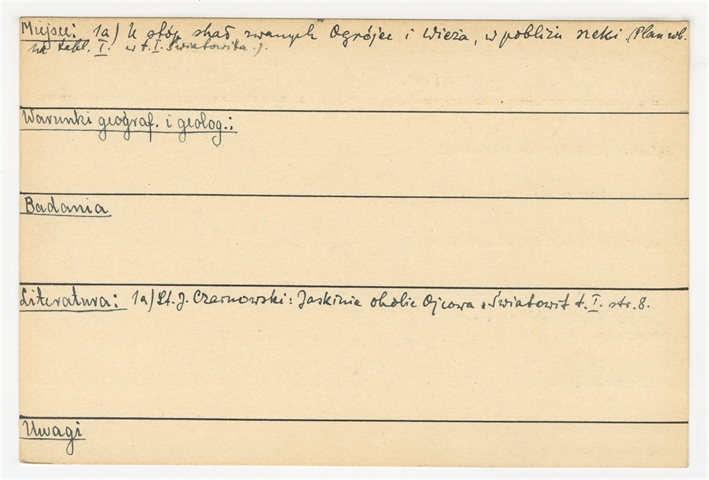 Miejsce: 1a) U stóp skał zwanych Ogrójec i Wieża, w pobliżu rzeki (Plan wł.
na tabl. I. w t. I. Światowita.).
Warunki geograf. i geolog.:
Badania
Literatura: 1a) St. J. Czarnowski: Jaskinie okolic Ojcowa. Światowit t. I. str. 8.
Uwagi